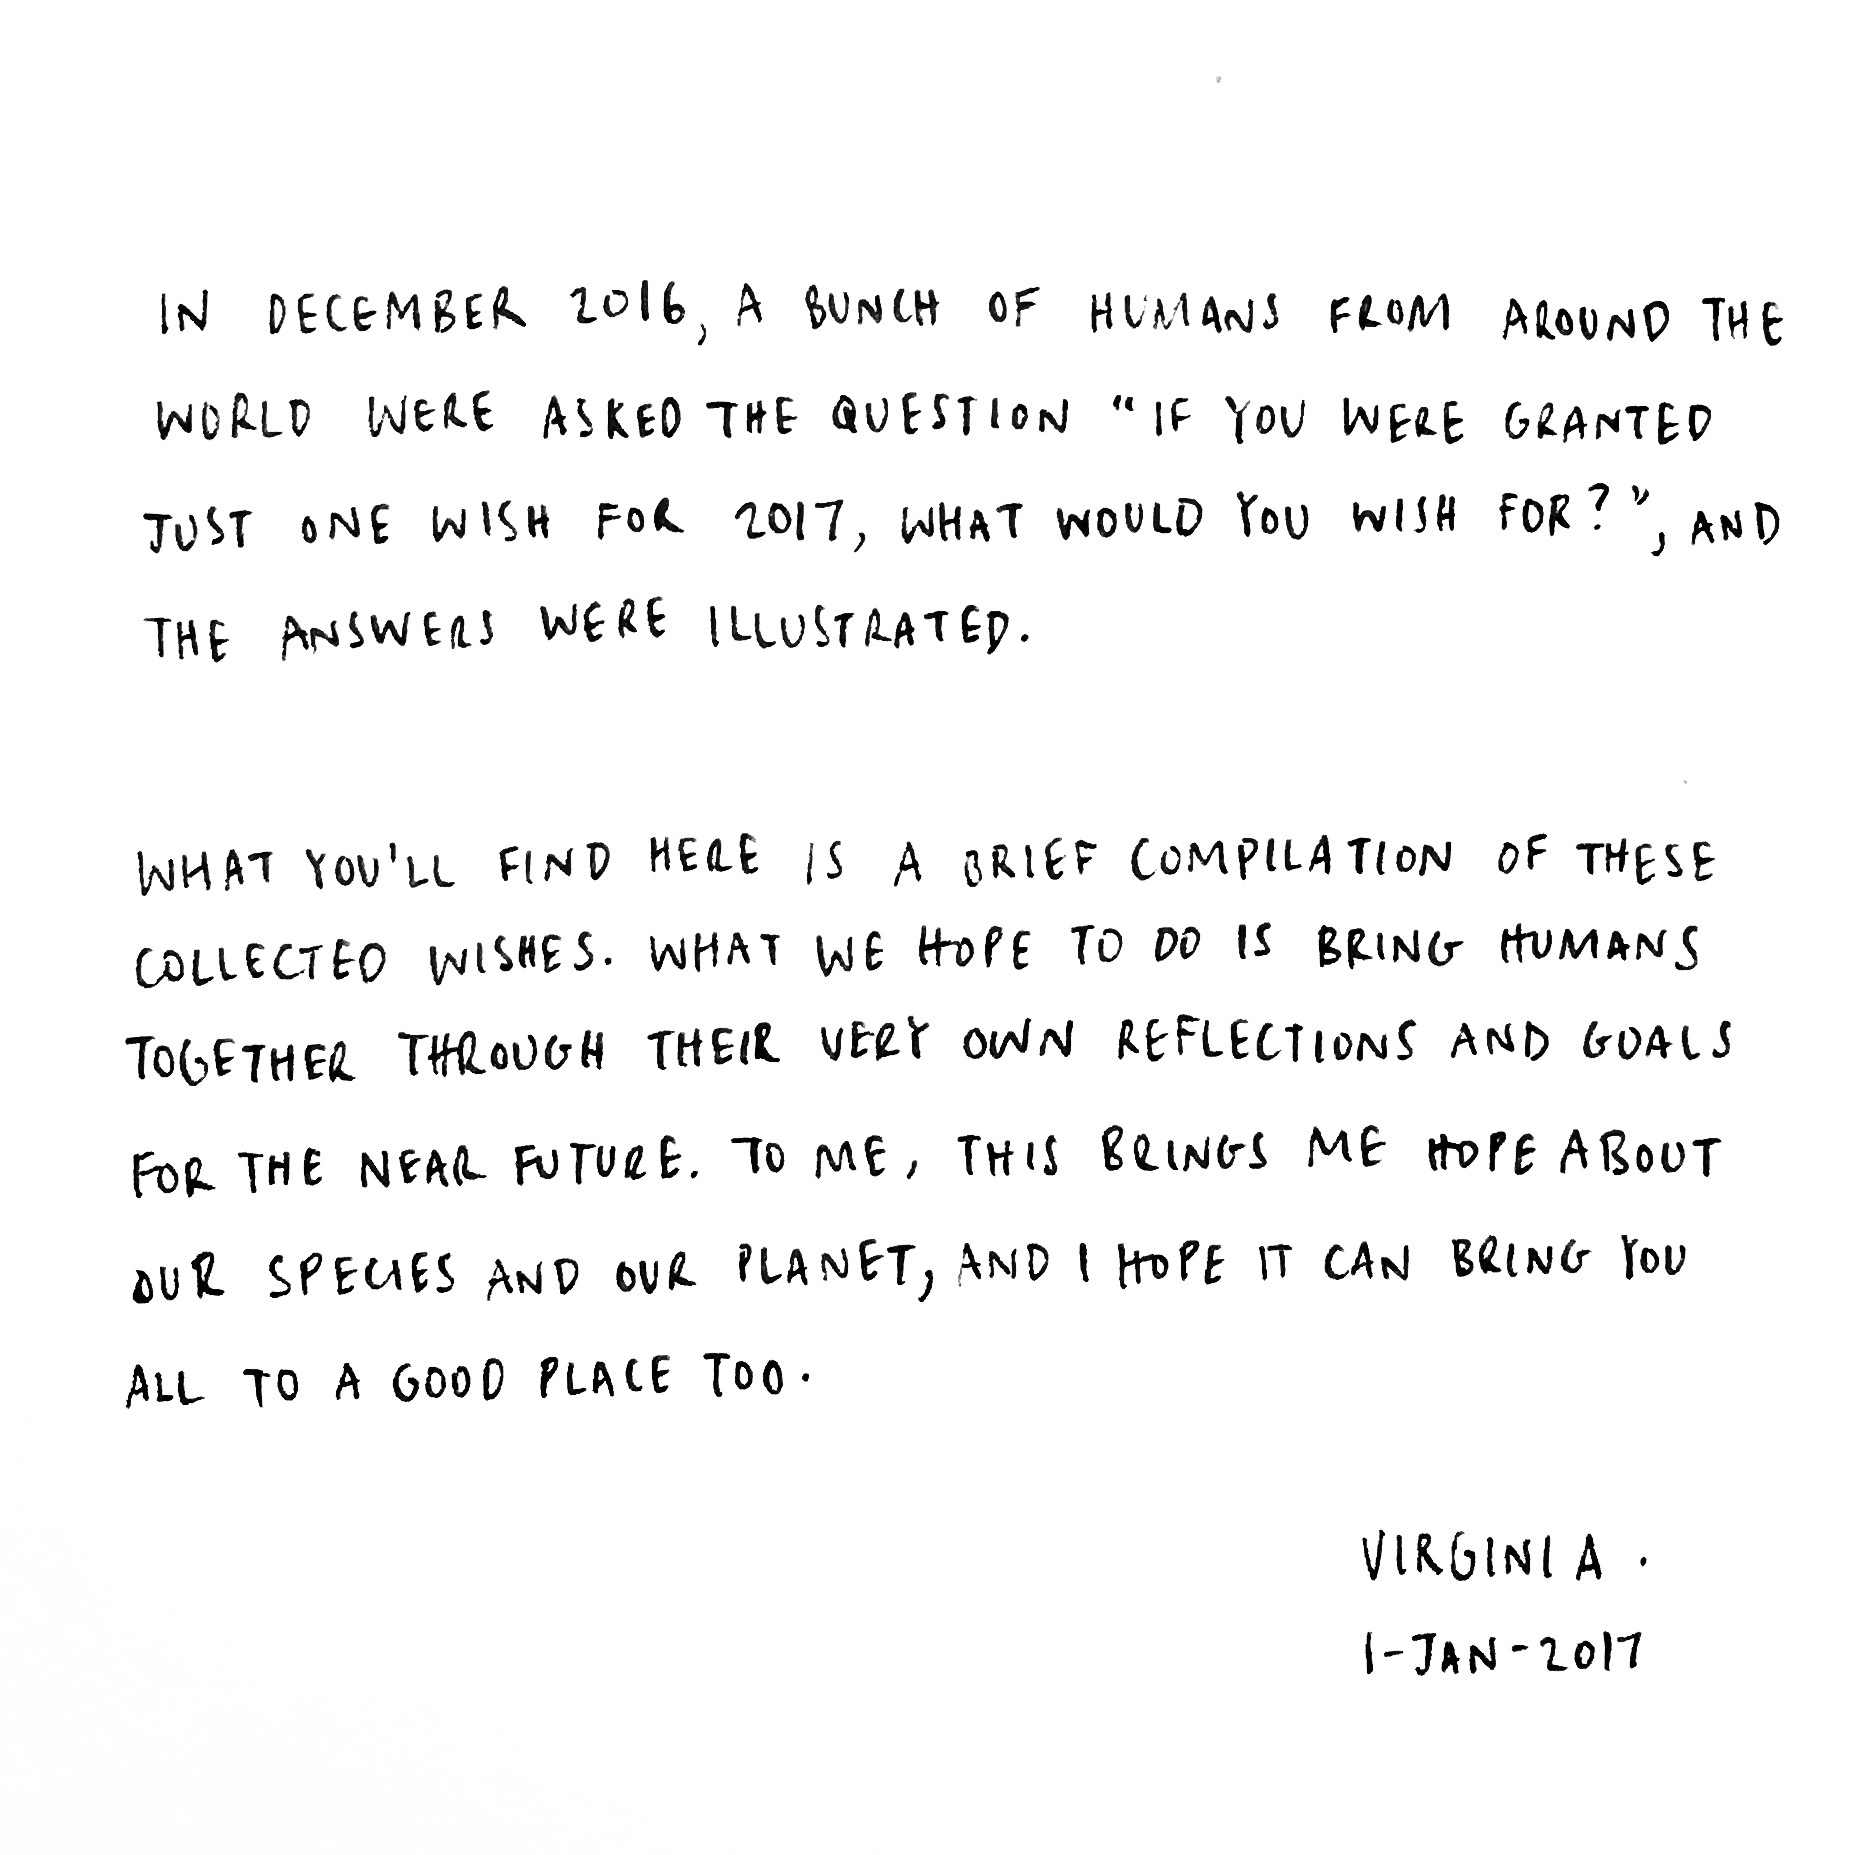 IN DECEMBER 2016, A BUNCH OF HUMANS FROM AROUND THE
WORLD WERE ASKED THE QUESTION “IF YOU WERE GRANTED
JUST ONE WISH FOR 2017, WHAT WOULD YOU WISH FOR?”, AND
THE ANSWERS WERE ILLUSTRATED.
WHAT YOU'LL FIND HERE IS A BRIEF COMPILATION OF THESE
COLLECTED WISHES. WHAT WE HOPE TO DO IS BRING HUMANS
TOGETHER THROUGH THEIR VERY OWN REFLECTIONS AND GOALS
FOR THE NEAR FUTURE. TO ME, THIS BRINGS ME HOPE ABOUT
OUR SPECIES AND OUR PLANET, AND I HOPE IT CAN BRING YOU
ALL TO A GOOD PLACE TOO.
VIRGINIA.
1-JAN-2017